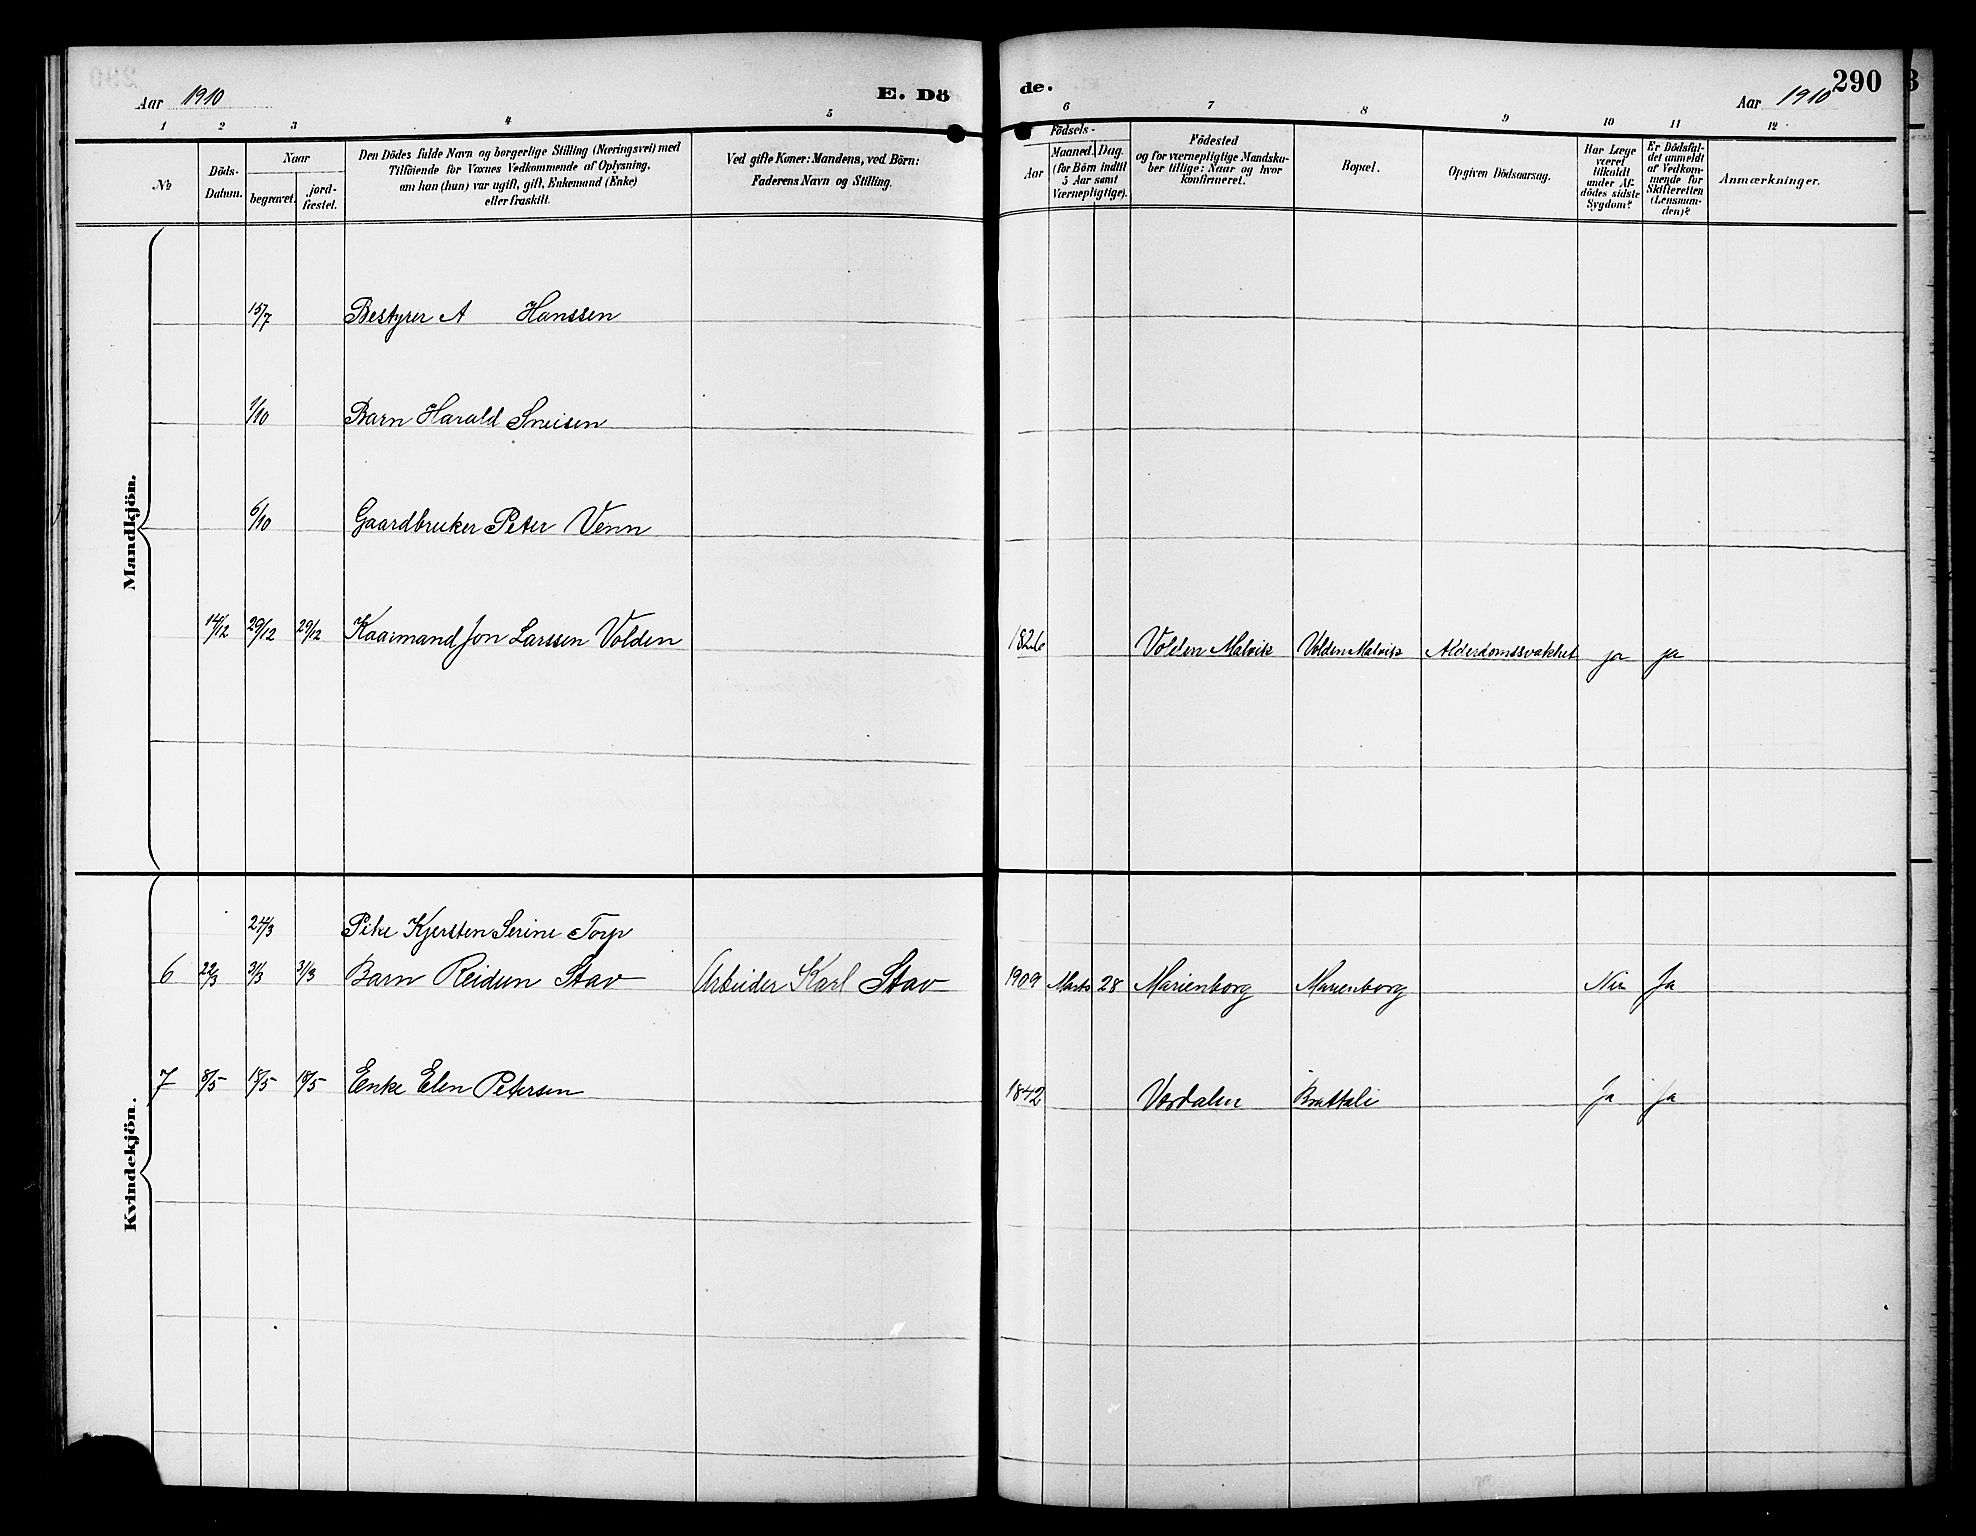 Aar 1910
E. Dö
de.
290
Aar 1910
1 2 3 4 5 6 7 8 9 10 11 12
№
Döds-
Datum.
Naar
begravet.
jord-
fæstet.
Den Dödes fulde Navn og borgerlige Stilling (Næringsvei) med
Tilföiende for Voxnes Vedkommende af Oplysning,
om han (hun) var ugift, gift, Enkemand (Enke)
eller fraskilt.
Ved gifte Koner: Mandens, ved Börn:
Faderens Navn og Stilling.
Födsels-
Aar
Maaned. Dag.
(for Börn indtil
5 Aar samt
Værnepligtige).
Födested
og for værnepligtige Mandska-
ber tillige: Naar og hvor
konfirmeret.
Bopæl.
Opgiven Dödsaarsag.
Har Læge
været
tilkaldt
under Af-
dödes sidste
Sygdom?
Er Dödsfal-
det anmeldt
af Vedkom-
mende for
Skifteretten
(Lensman-
den)?
Anmærkninger.
Mandkjön.
15/7 Bestyrer A Hanssen
1/10 Barn Harald Sneisen
6/10 Gaardbruker Peter Venn
14/12 29/12 29/12 Kaarmand Jon Larssen Volden 1826 Volden Malvik Volden Malvik Alderdomssvakhet ja ja
Kvindekjön.
24/3 Pike Kjersten Serine Torp
6 22/3 31/3 31/3 Barn Reidun Stav Arbeider Karl Stav 1909 Marts 28 Marienborg Marienborg Nei Ja
7 8/5 18/5 18/5 Enke Elen Petersen 1842 Værdalen Brattali Ja Ja